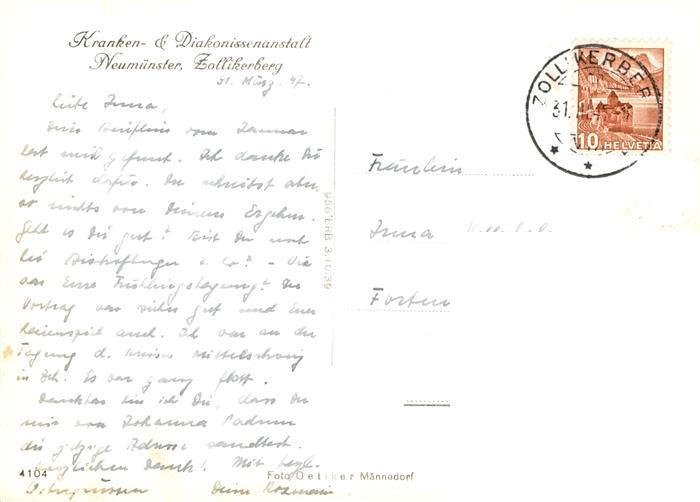 Kranken- & Diakonissenanstalt
Neumünster, Zollikerberg
31. März 47.
Liebe Irma,
Dein Brieflein vom Januar
hat mich gefreut. Ich danke Dir
herzlich dafür. Du schreibst aber
so nichts von Deinem Ergehen.
Geht es Dir gut? Bist Du noch
bei Bischofberger & Co? - Wie
war Eure Frühlingstagung? Der
Vortrag war sicher gut und Euer
Laienspiel auch. Ich war an der
Tagung d. Kreises Mittelschweiz
in Zch. Es war ganz flott.
Dankbar bin ich Dir, dass Du
mir von Johanna
die jetzige Adresse sandtest.
Herzlichen Dank! Mit herzl.
Ostergrüssen Deine Rosmarie
4104
Foto Oetiker Männedorf
956 LRB 3.10.39
ZOLLIKERBERG
31.
10 HELVETIA
Fräulein
Irma
Forten